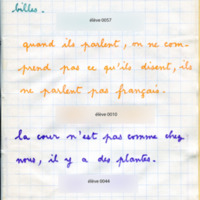 billes.
élève 0037
quand ils parlent, on ne com-
prend pas ce qu'ils disent, ils
ne parlent pas français.
élève 0010
la cour n'est pas comme chez
nous, il y a des plantes.
élève 0044